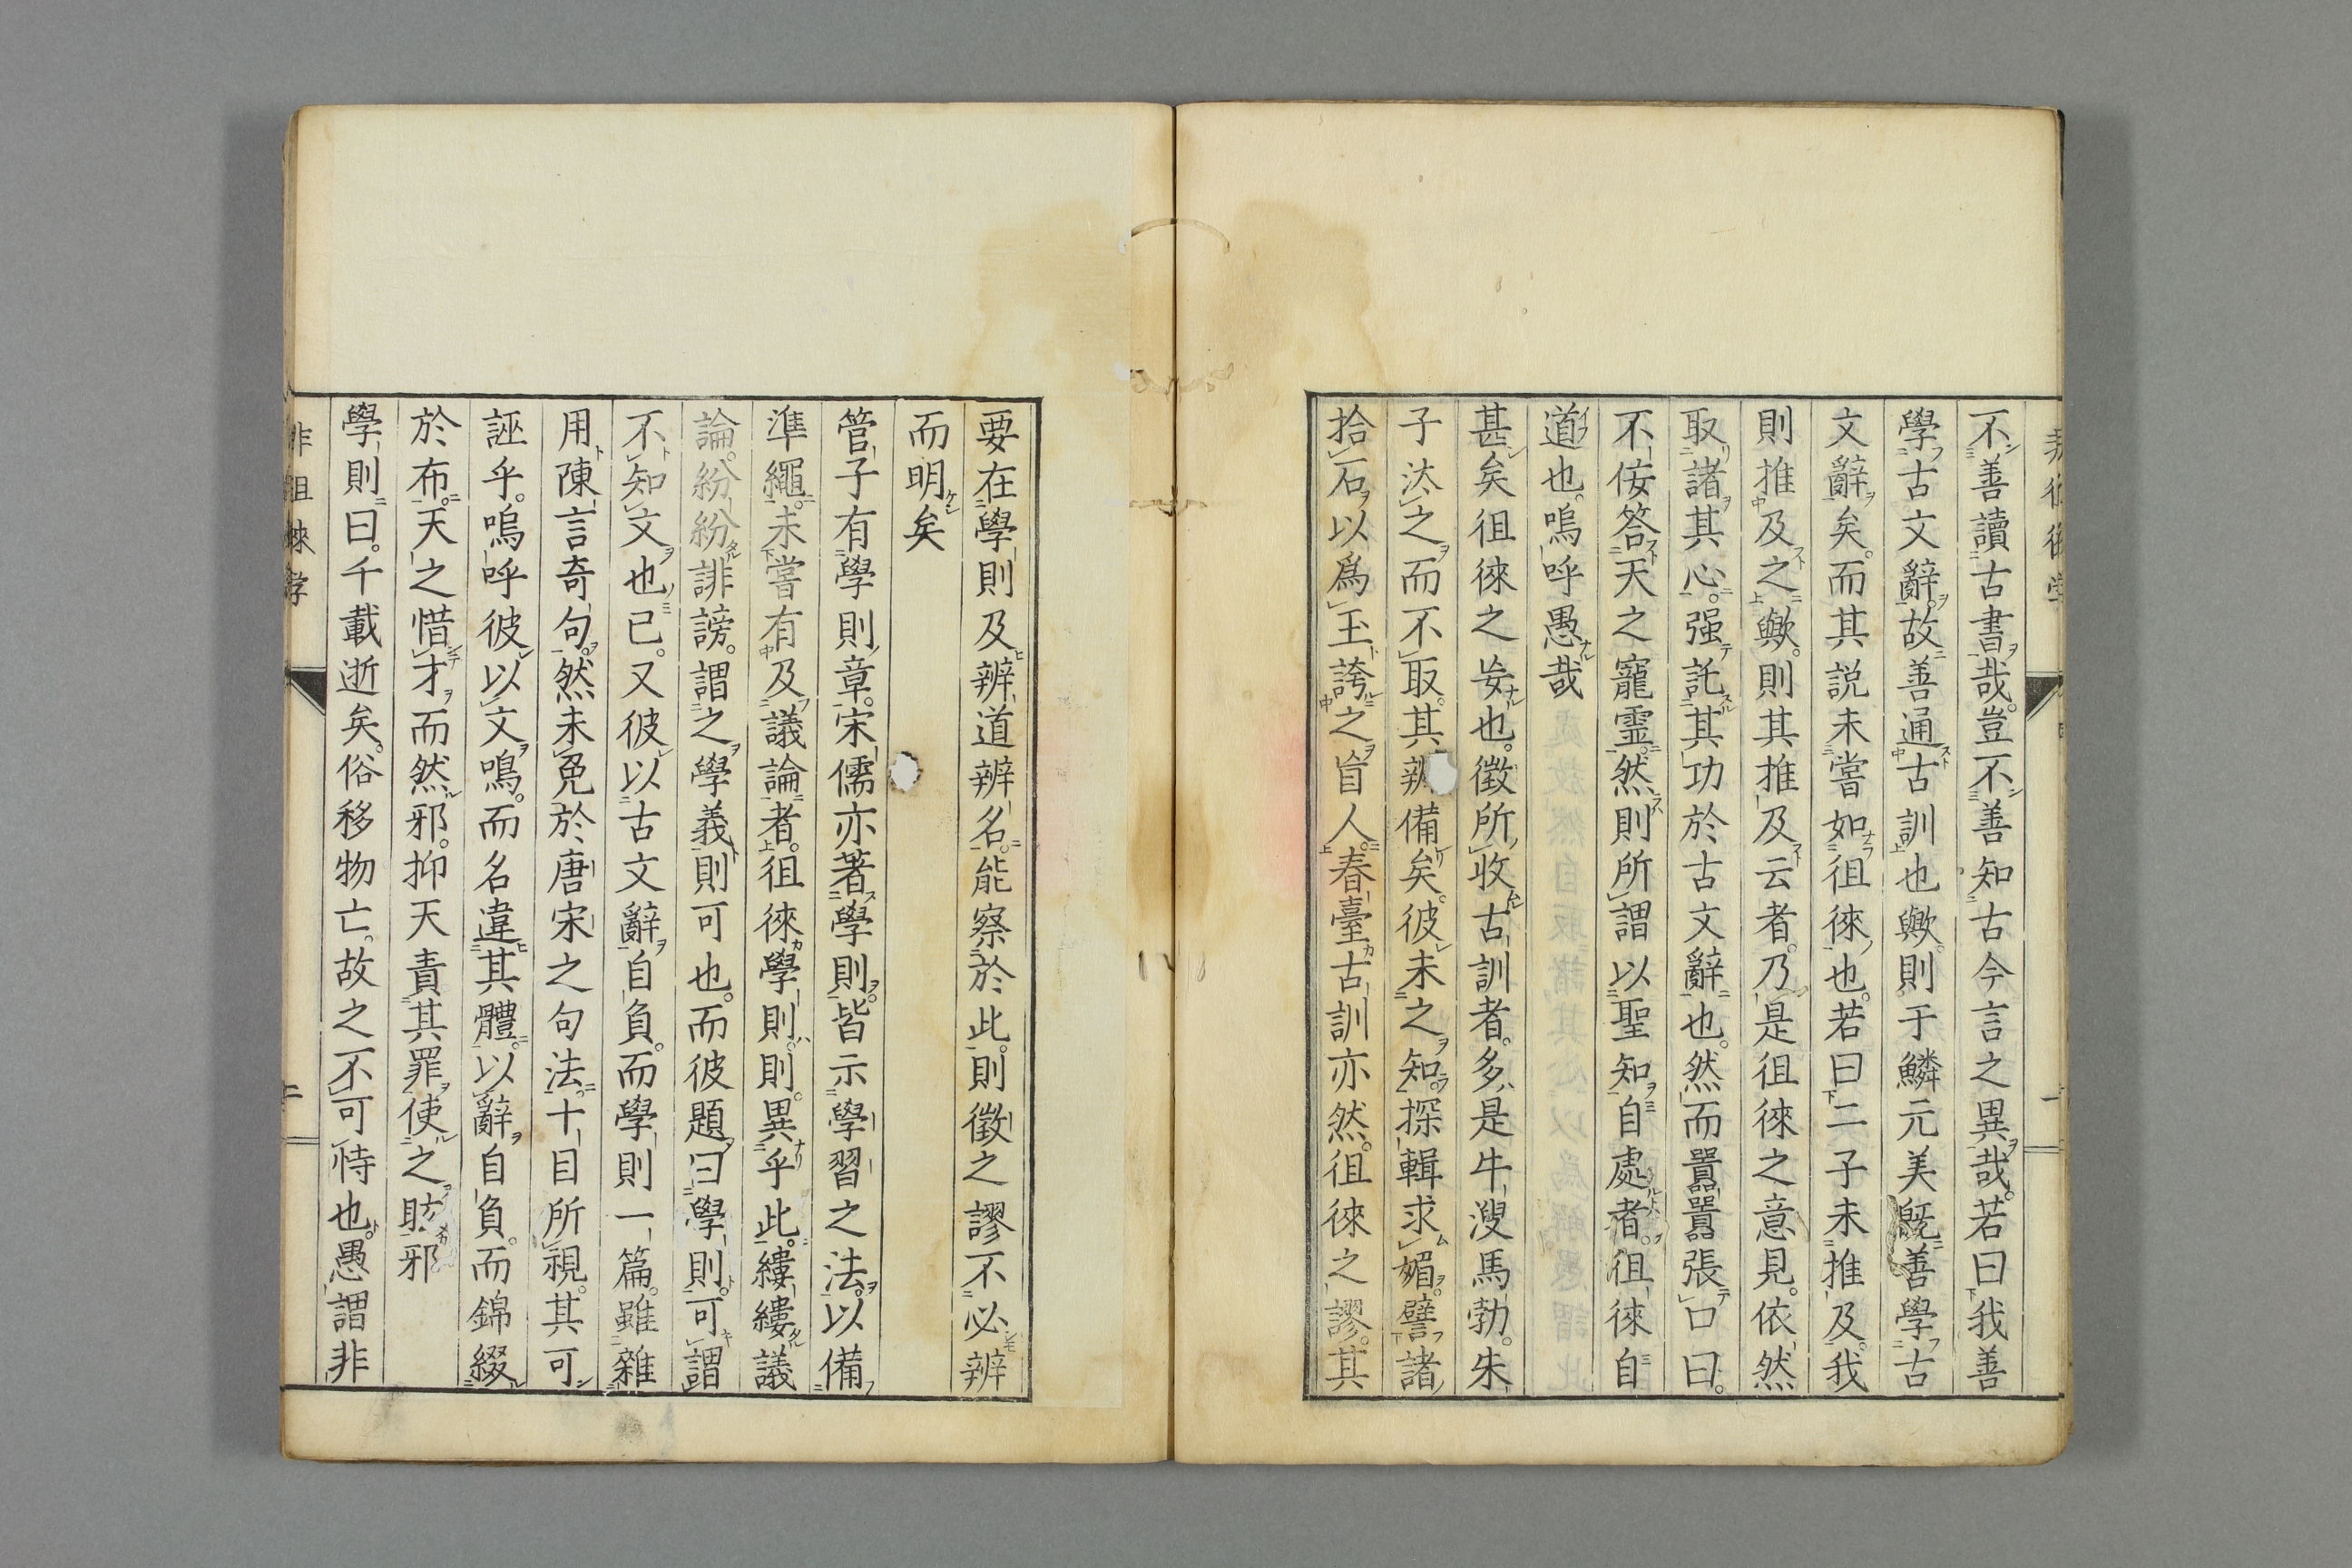 不善讀古書哉。豈不善知古今言之異哉。若曰我善
學古文辭。故善通古訓也歟。則于鱗元美旣善學古
文辭矣。而其説未嘗如徂徠也。若曰二子未推及。我
則推及之歟。則其推及云者。乃是徂徠之意見。依然
取諸其心。强託其功於古文辭也。然而囂囂張口曰。
不佞答天之寵靈。然則所謂以聖知自處者。徂徠自
道也。嗚呼愚哉
甚矣徂徠之妄也。徵所收古訓者。多是牛溲馬勃。朱
子汰之而不取。其辨備矣。彼未之知。探輯求媚。譬諸
拾石以爲玉誇之盲人。春臺古訓亦然。徂徠之謬。其
要在學則及辨道辨名。能察於此。則徵之謬不必辨
而明矣
管子有學則章。宋儒亦著學則。皆示學習之法。以備
準繩。未嘗有及議論者。徂徠學則。則異乎此。縷縷議
論。紛紛誹謗。謂之學義則可也。而彼題曰學則。可謂
不知文也已。又彼以古文辭自負。而學則一篇。雖雜
用陳言奇句。然未免於唐宋之句法。十目所視。其可
誣乎。嗚呼彼以文鳴。而名違其體。以辭自負。而錦綴
於布。天之惜才而然邪。抑天責其罪。使之眩邪
學則曰。千載逝矣。俗移物亡。故之不可恃也。愚謂非
非徂徠學
二